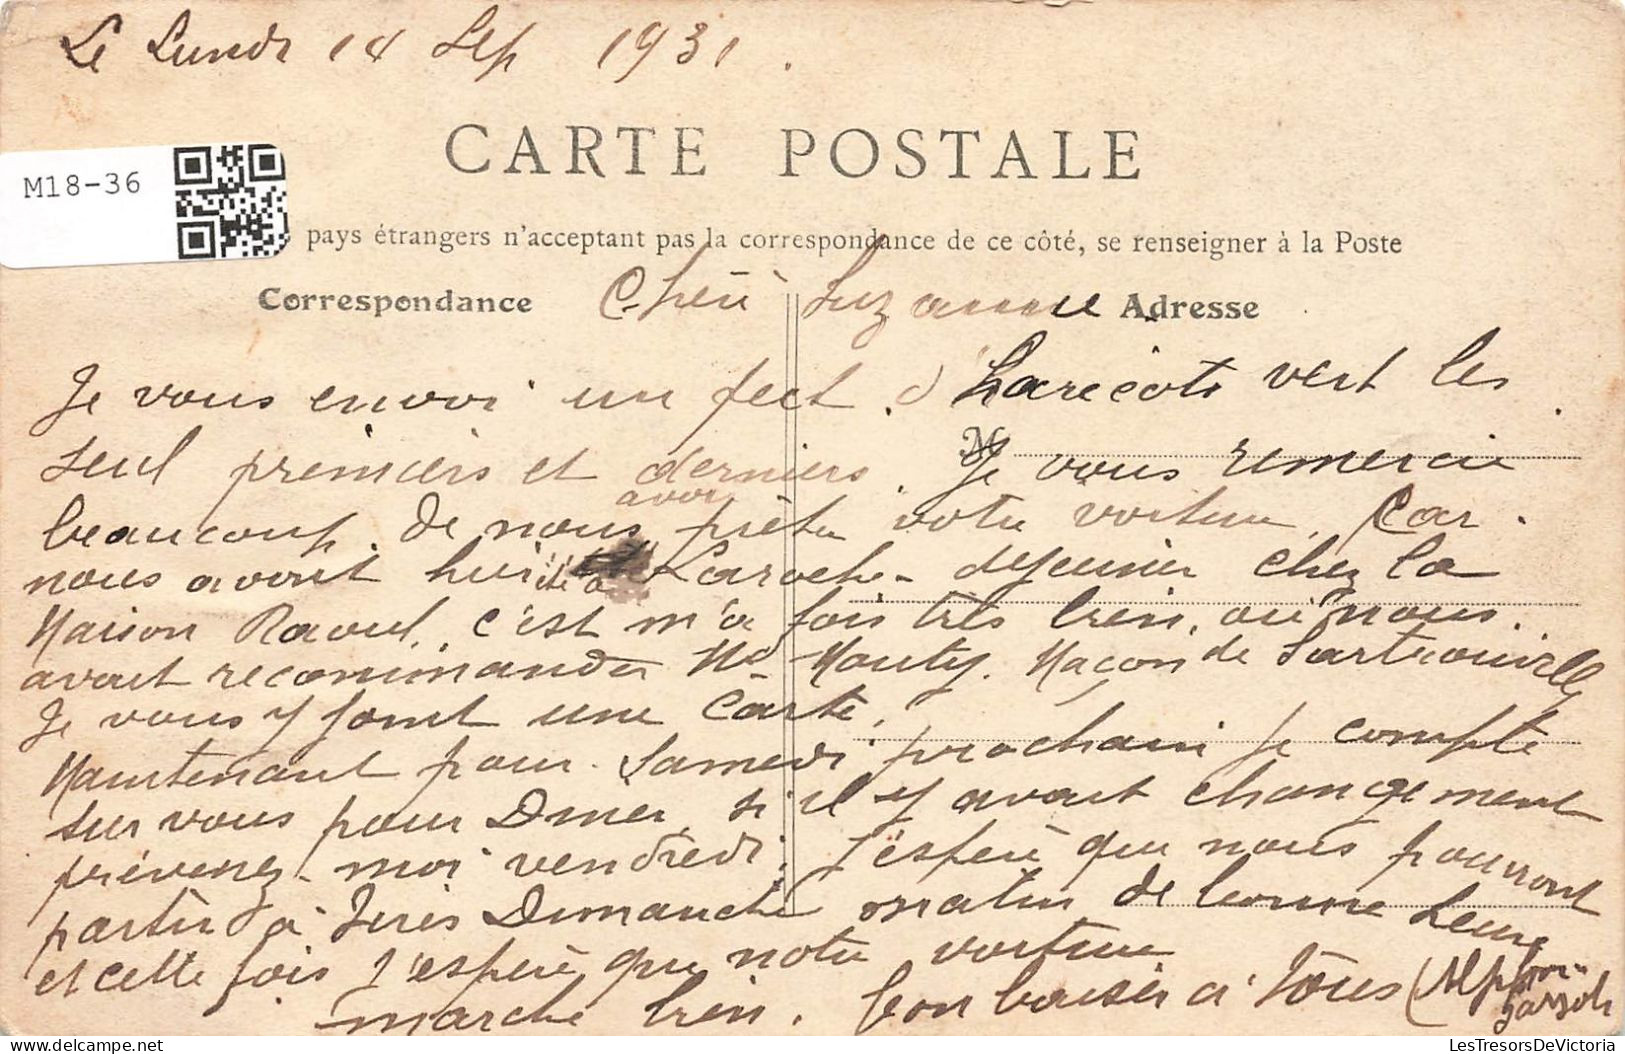 Le Lundi 14 Sep 1931.
CARTE POSTALE
M18-36
pays étrangers n'acceptant pas la correspondance de ce côté, se renseigner à la Poste
Correspondance
Adresse
Chèri Suzanne
Je vous envoi un d'harecots vert les
seul premiers et derniers. Je vous remercie
M
beaucoup de nous avoir prèter votre voiture Car
nous avont Laroche dejeunier chez la
Maison Raoul, c'est m'a fois très bien, ou nous
avait recommander Maçon de Sartrouvilly
Je vous y joint une Carte.
Maintenant pour Samedi prochain je compte
sur vous pour Diner, si il y avait changement
prévenez moi vendredi, j'espère que nous pourront
partir à Dimanche matin de bonne heure
et cette fois j'espère que notre voiture
marche bien. bon baiser a Tous
LesTresorsDeVictoria @ www.delcampe.net